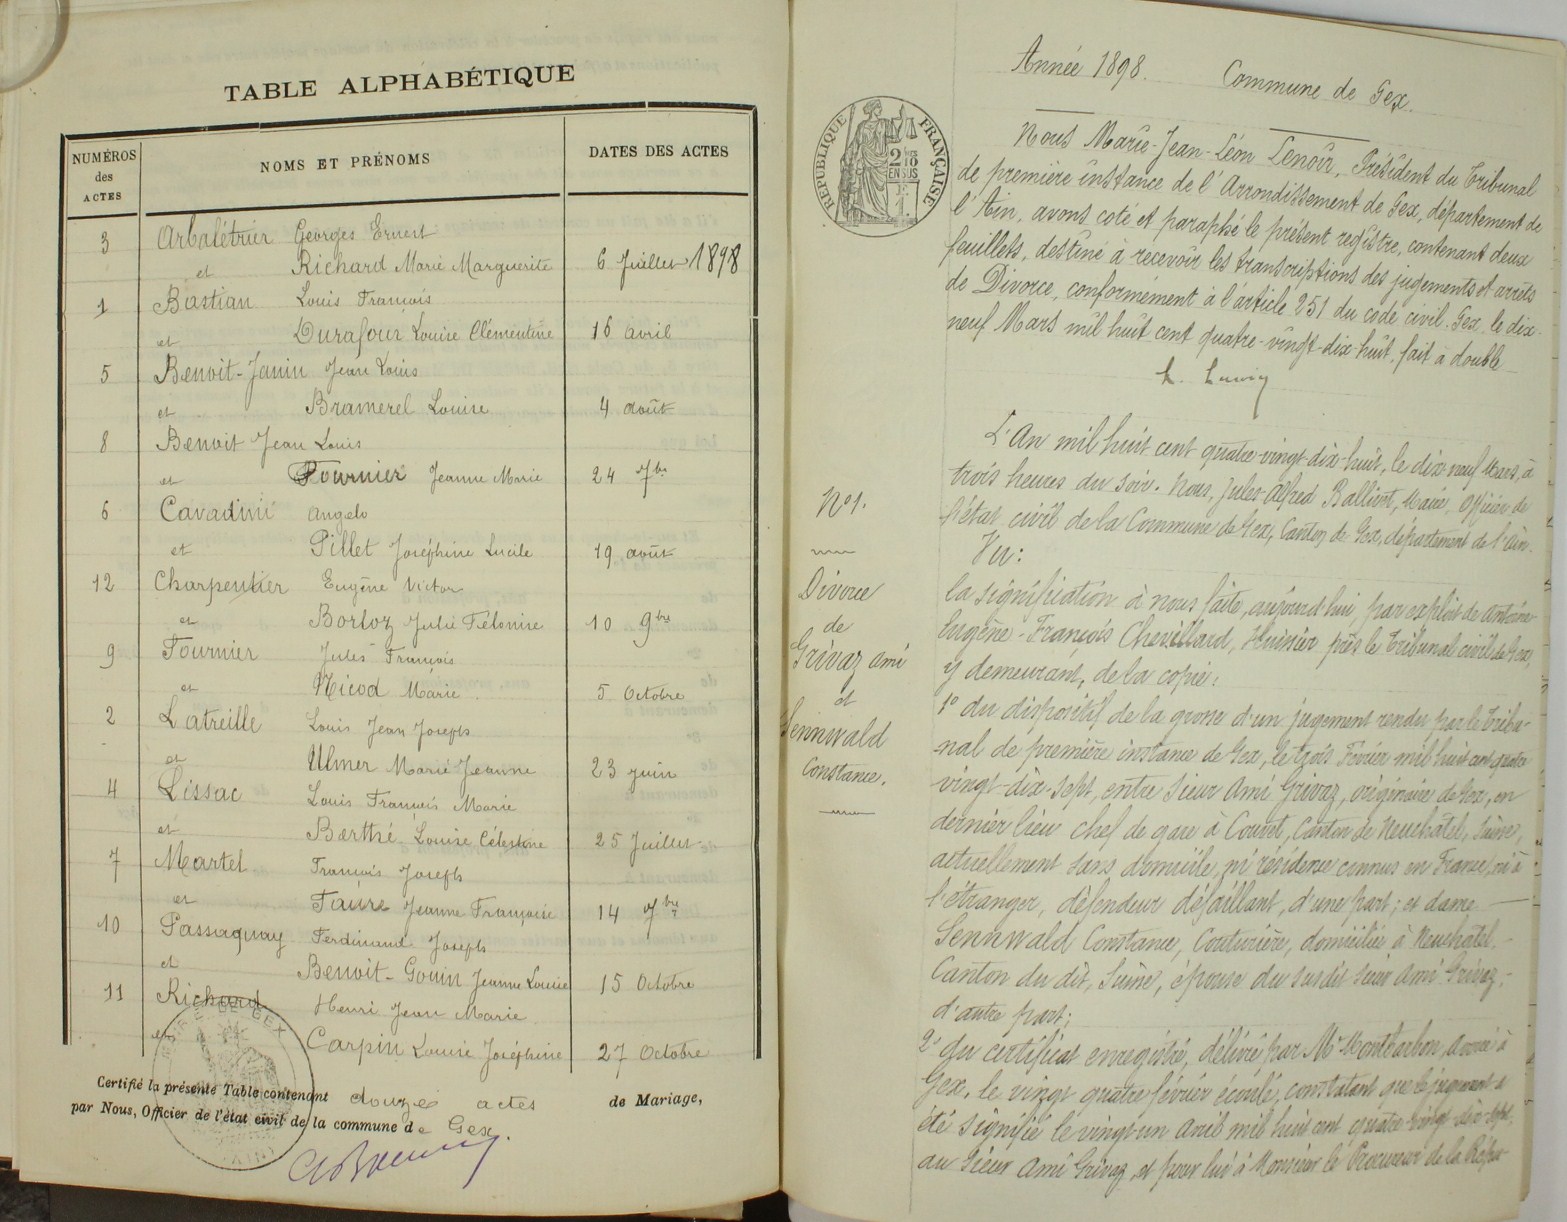 TABLE ALPHABÉTIQUE
NUMÉROS des ACTES
NOMS ET PRÉNOMS
DATES DES ACTES
3 Arbalétrier Georges Ernest
et Richard Marie Marguerite 6 Juillet 1898
1 Bastian Louis François
et Durafour Louise Clémentine 16 avril
5 Benoit-Janin Jean Louis
et Bramerel Louise 4 août
8 Benoit Jean Louis
et Fournier Jeanne Marie 24 7bre
6 Cavadini Angelo
et Pillet Joséphine Lucile 19 août
12 Charpentier Eugène Victor
et Borloz Julie Félonise 10 9bre
9 Fournier Jules François
et Nicod Marie 5 Octobre
2 Latreille Louis Jean Joseph
et Ulmer Marie Jeanne 23 juin
4 Lissac Louis François Marie
et Barthé Louise Célestine 25 Juillet
7 Martel François Joseph
et Faure Jeanne Françoise 14 7bre
10 Passaquay Ferdinand Joseph
et Benoit-Gouin Jeanne Louise 15 Octobre
11 Richard Henri Jean Marie
et Carpin Louise Joséphine 27 Octobre
Certifié la présente Table contenant douze actes de Mariage,
par Nous, Officier de l'état civil de la commune de Gex.
DE GEX
Année 1898. Commune de Gex.
RÉPUBLIQUE FRANÇAISE
2/10 EN SUS
Nous Marie-Jean-Léon Lenoir, Président du Tribunal
de première instance de l'Arrondissement de Gex, département de
l'Ain, avons coté et paraphé le présent registre, contenant deux
feuillets, destiné à recevoir les transcriptions des jugements et arrêts
de Divorce, conformément à l'article 251 du code civil. Gex, le dix-
neuf Mars mil huit cent quatre-vingt-dix-huit, fait à double
L'An mil huit cent quatre-vingt-dix-huit, le dix-neuf Mars, à
trois heures du soir. Nous, Jules-Alfred Ballivet, Maire, Officier de
l'état civil de la Commune de Gex, Canton de Gex, département de l'Ain.
Vu:
N° 1.
Divorce
de
Grivaz Ami
et
Sennwald
Constance.
la signification à nous faite, aujourd'hui, par exploit de Antoine
Eugène-François Chevillard, Huissier près le Tribunal civil de Gex,
y demeurant, de la copie:
1° du dispositif de la grosse d'un jugement rendu par le Tribu-
nal de première instance de Gex, le trois Février mil huit cent quatre
vingt-dix-sept, entre Sieur Ami Grivaz, originaire de Gex, en
dernier lieu chef de gare à Couvet, Canton de Neuchâtel, Suisse,
actuellement sans domicile, ni résidence connus en France, ni à
l'étranger, défendeur défaillant, d'une part; et dame
Sennwald Constance, Couturière, domiciliée à Neuchâtel,
Canton du dit, Suisse, épouse du susdit sieur Ami Grivaz,
d'autre part;
2° du certificat enregistré, délivré par Me Montbarbon, avoué à
Gex, le vingt quatre février écoulé, constatant que le jugement a
été signifié le vingt-un Avril mil huit cent quatre-vingt-dix-sept
au Sieur Ami Grivaz, et pour lui à Monsieur le Procureur de la Répu-